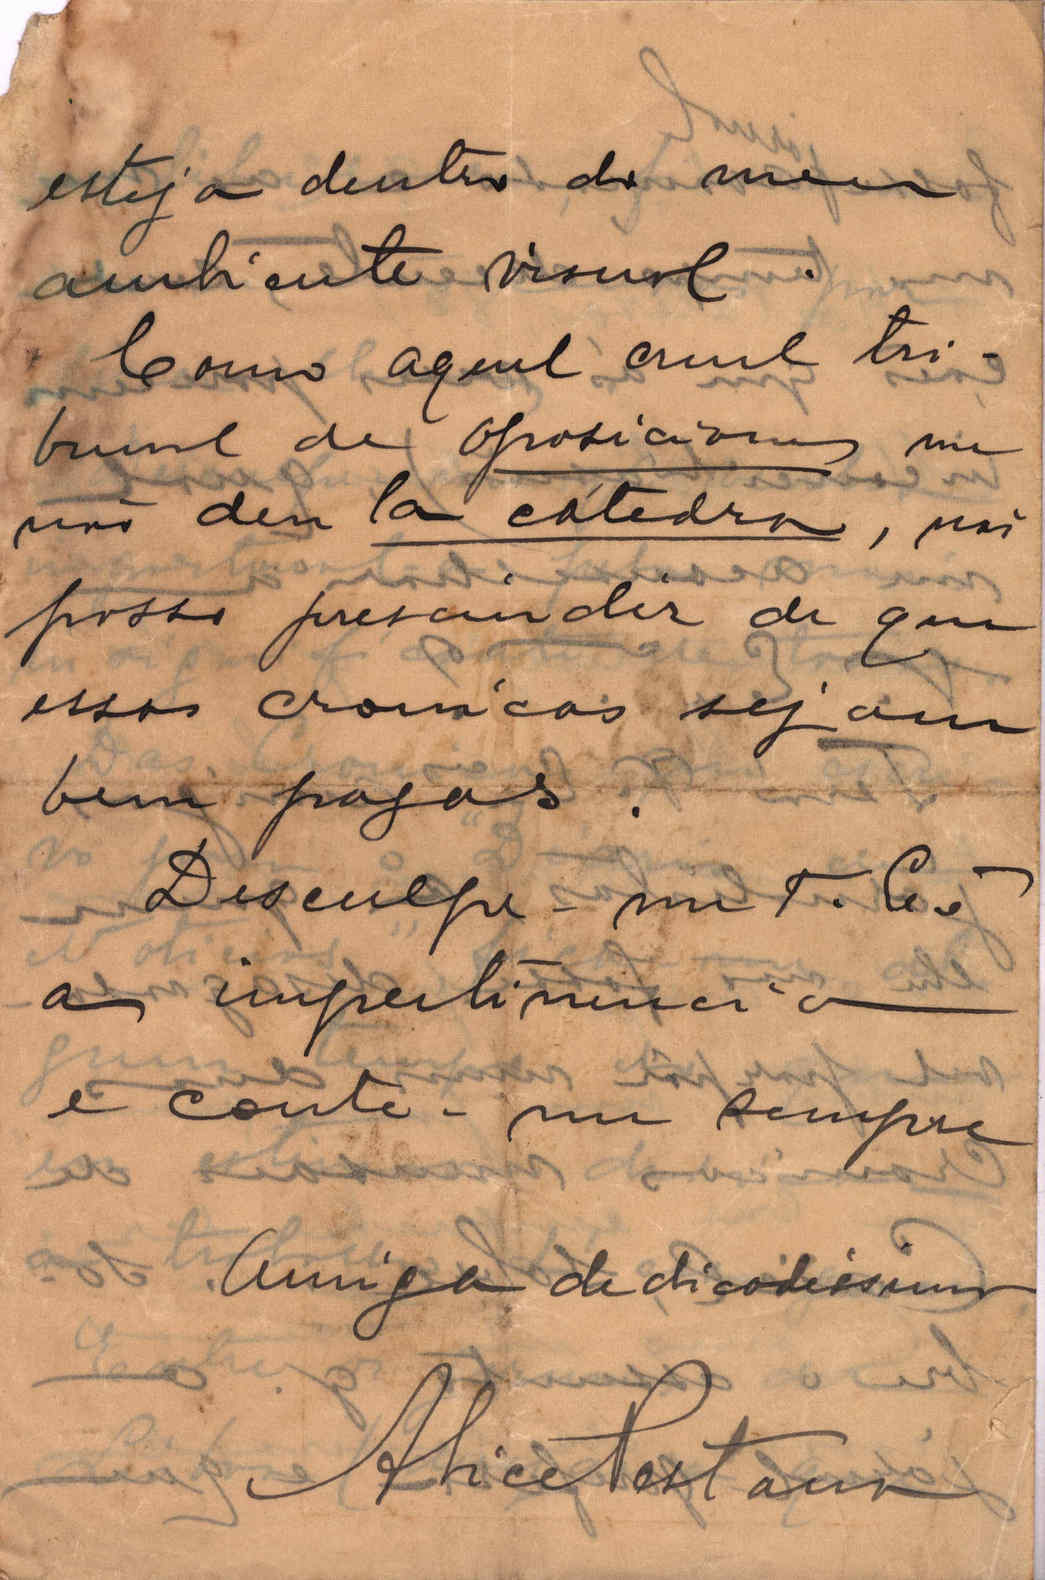 esteja dentro do meu
ambiente visual.
Como aquel cruel tri-
bunal de oposiciones me
não deu la cátedra, não
posso prescindir de que
essas cronicas sejam
bem pagas.
Desculpe-me V. Ex.ª
a impertinencia
e conte-me sempre
Amiga dedicadissima
Alice Pestana